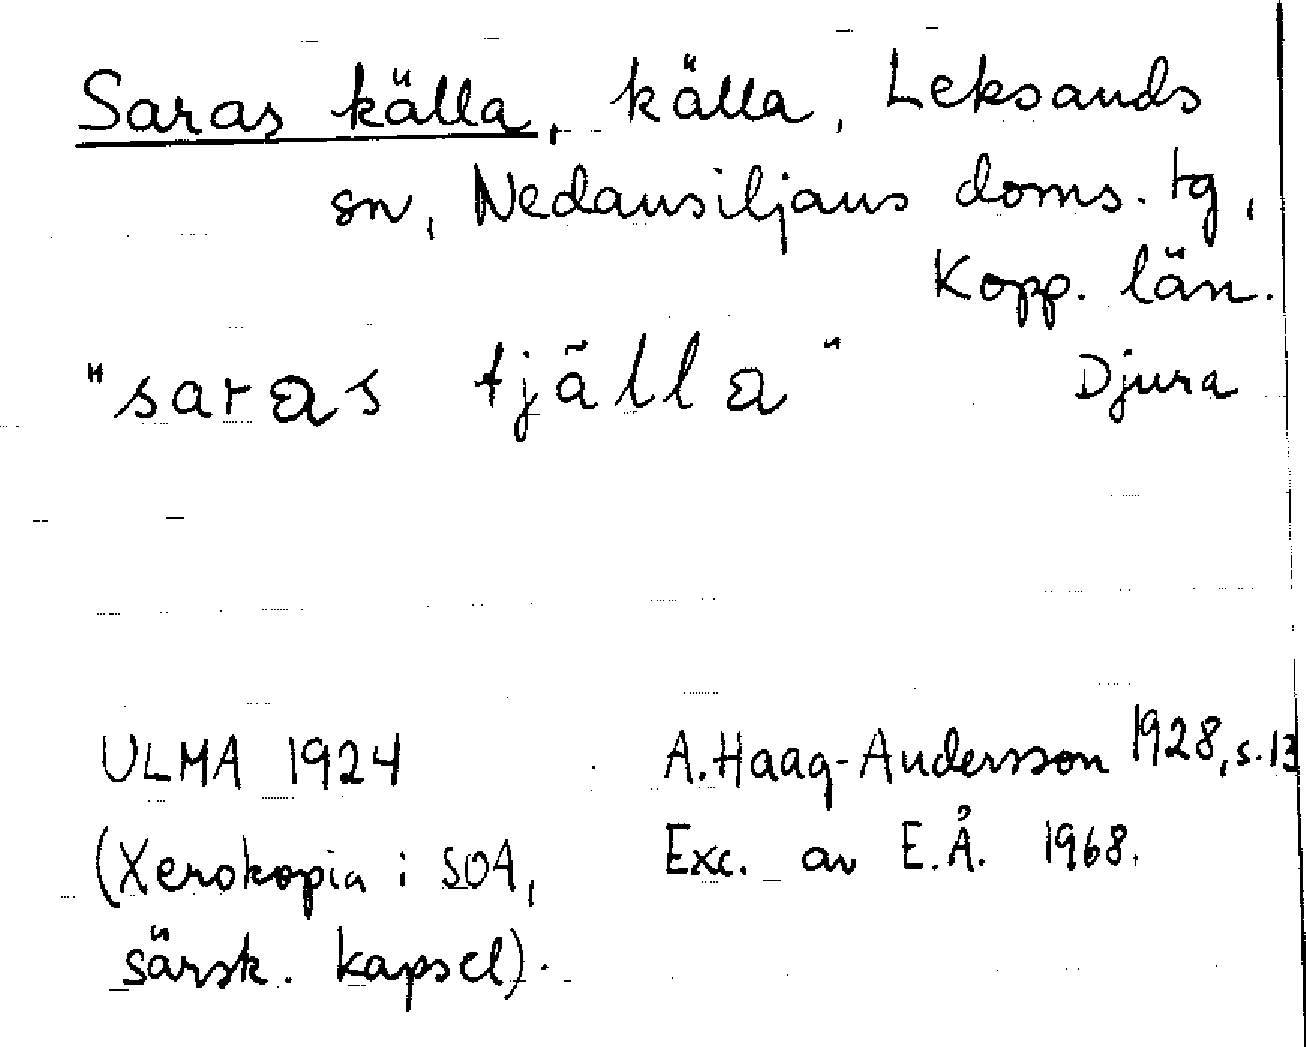 Saras källa, källa, Leksands
sn, Nedansiljans doms. tg,
Kopp. län.
"saras tjälla"
Djura
ULMA 1924
(Xerokopia i SOA,
särsk. kapsel).
A. Haag-Andersson 1928, s. 13
Exc. av E.Å. 1968.